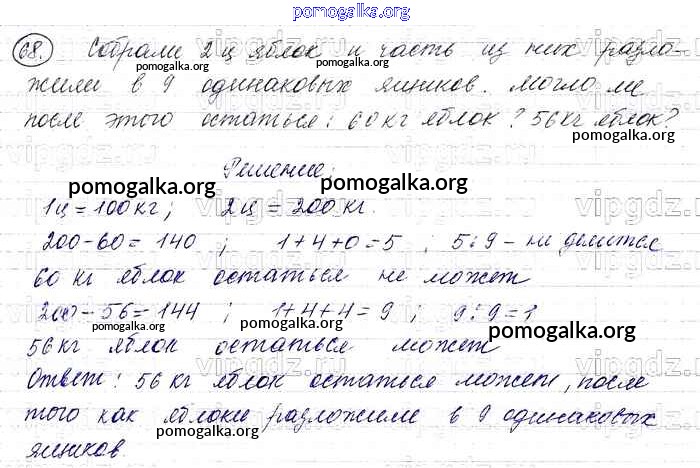 pomogalka.org
68. Собрали 2 ц яблок и часть из них разло-
pomogalka.org pomogalka.org
жили в 9 одинаковых ящиков. Могло ли
pomogalka.org pomogalka.org
после этого остаться: 60 кг яблок? 56 кг яблок?
pomogalka.org
Решение:
pomogalka.org vipgdz.ru
1 ц = 100 кг; 2 ц = 200 кг.
200 - 60 = 140 ; 1+4+0=5 ; 5:9 - не делится
pomogalka.org
60 кг яблок остаться не может
200 - 56 = 144 ; 1+4+4=9 ; 9:9=1
pomogalka.org pomogalka.org pomogalka.org
56 кг яблок остаться может
Ответ: 56 кг яблок остаться может, после
pomogalka.org pomogalka.org
того как яблоки разложили в 9 одинаковых
pomogalka.org
ящиков.
pomogalka.org